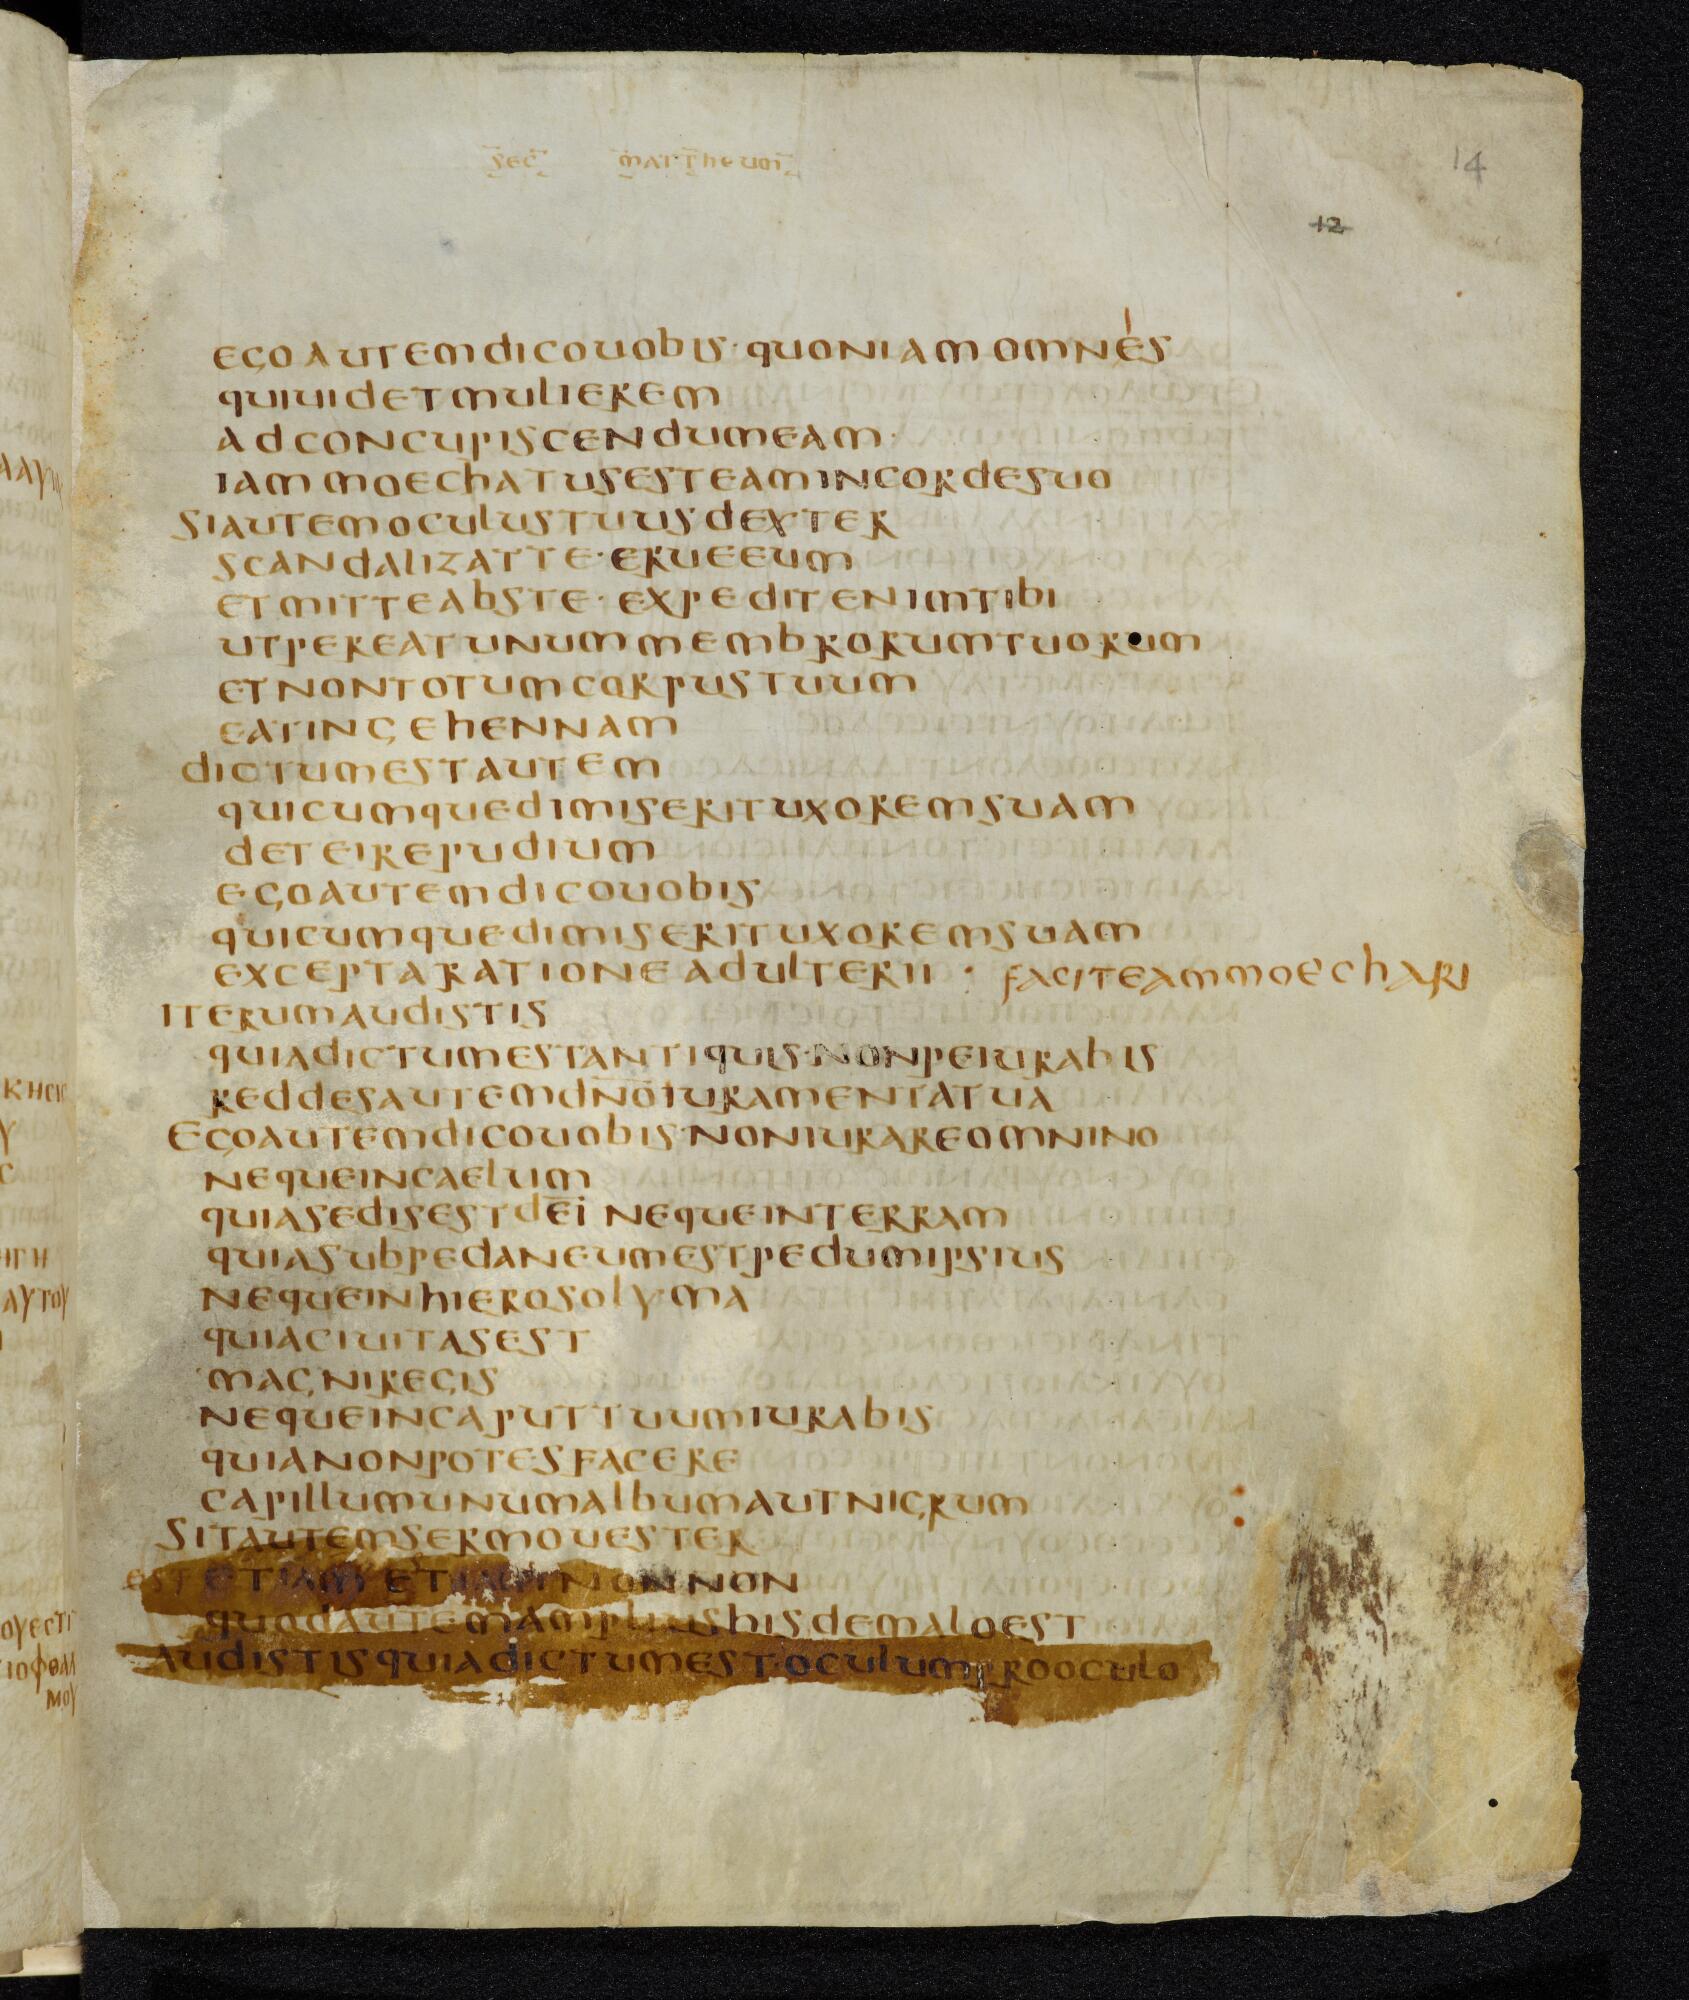 sec mattheum
14
12
egoautemdicouobis·quoniamomnes
quiuidetmulierem
adconcupiscendumeam·
iammoechatusesteamincordesuo
siautemoculustuusdexter
scandalizatte·erueeum
etmitteabste·expeditenimtibi
utpereatunummembrorumtuorum
etnontotumcorpustuum
eatingehennam
dictumestautem
quicumquedimiserituxoremsuam
deteirepudium
egoautemdicouobis
quicumquedimiserituxoremsuam
exceptarationeadulterii · faciteammoechari
iterumaudistis
quiadictumestantiquis·nonpeiurabis
reddesautemdn̅o̅iuramentatua
egoautemdicouobis·noniurareomnino
nequeincaelum
quiasedisestdei nequeinterram
quiasubpedaneumestpedumipsius
nequeinhierosolyma
quiaciuitasest
magniregis
nequeincaputtuumiurabis
quianonpotesfacere
capillumunumalbumautnigrum
sitautemsermouester
est etiam etiam nonnon
quodautemampliushisdemaloest
audistisquiadictumest·oculumprooculo